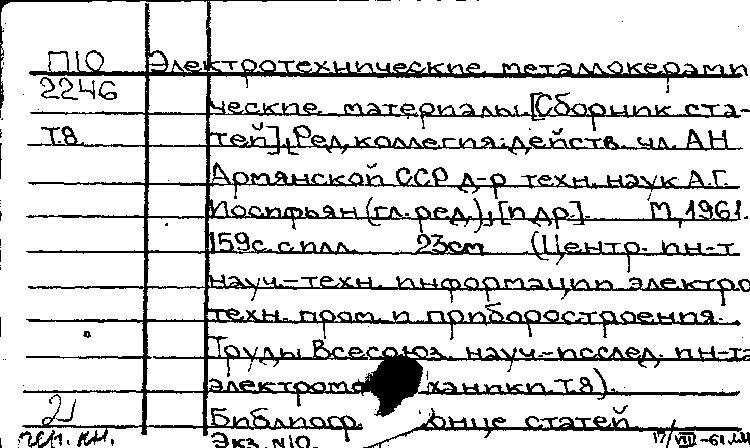 П10 Электротехнические металлокерами
2246
ческие материалы. [Сборник ста-
Т.8. тей], Ред. коллегия: действ. чл. АН
Армянской ССР д-р техн. наук А.Г.
Иосифьян (гл. ред.), [и др]. М, 1961.
159с. с илл. 23см (Центр. ин-т
науч.-техн. информации электро
техн. пром. и приборостроения.
Труды Всесоюз. науч.-исслед. ин-та
электроме ханики. Т.8).
2
Библиогр. конце статей
Экз. N10.